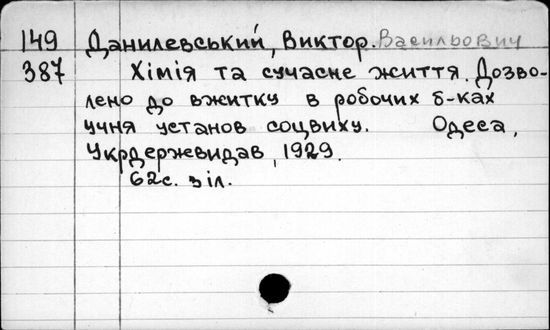 149 Данилевський, Виктор. Васильович
387 Хімія та сучасне життя. Дозво-
лено до вжитку в робочих б-ках
учня установ соцвиху. Одеса,
Укрдержевидав, 1929.
62с. з іл.